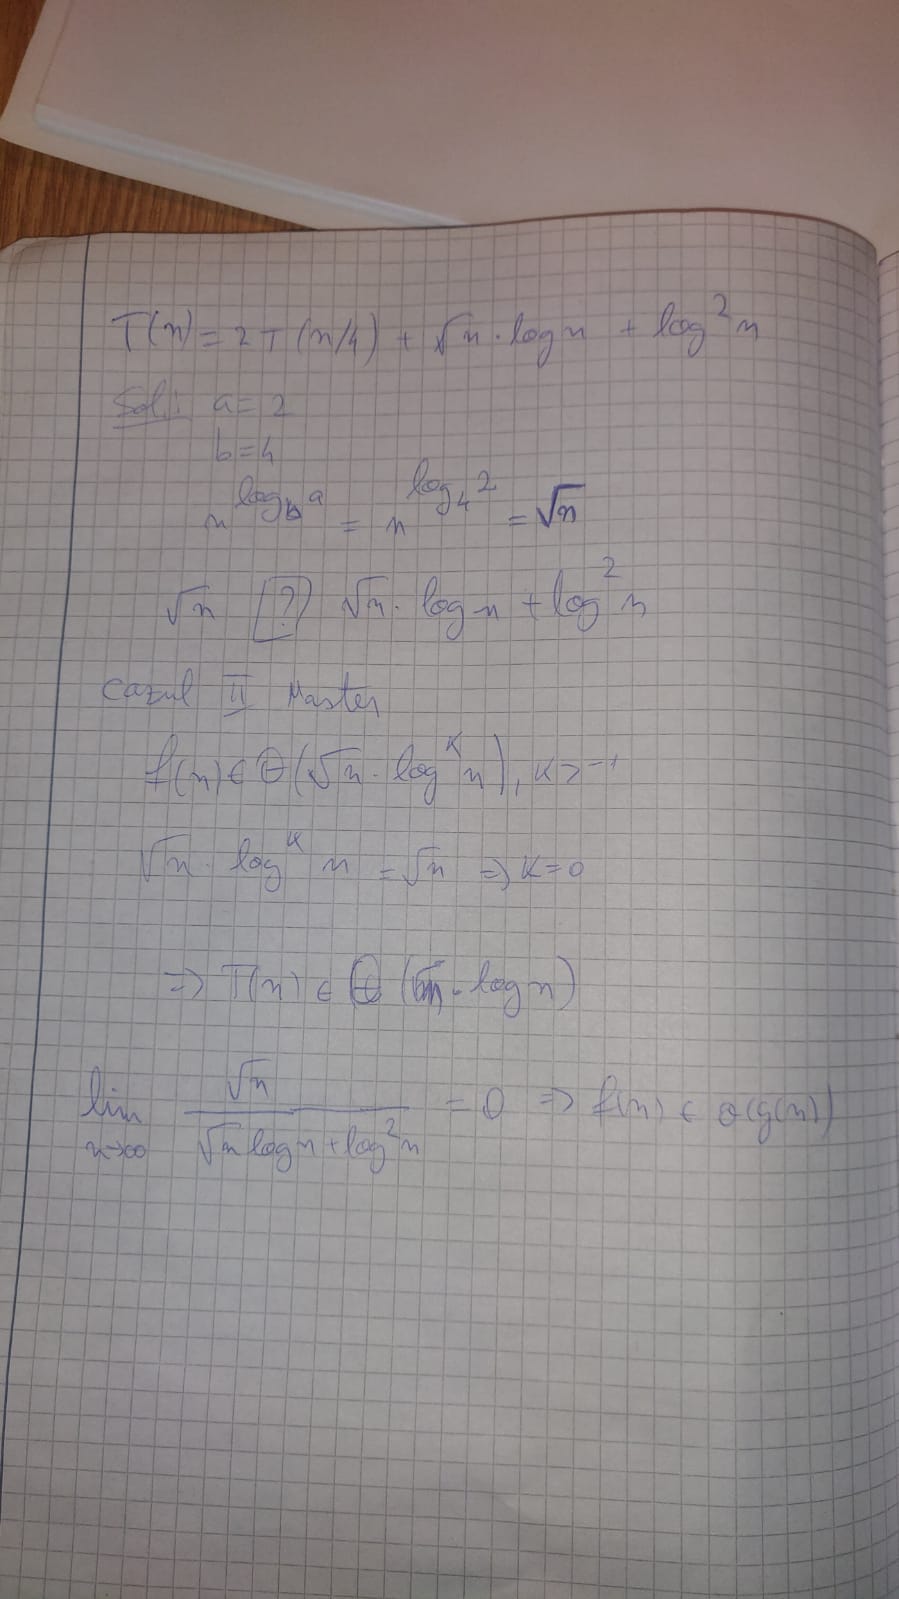 T(n) = 2T(n/4) + √n · log n + log² n
Sol.: a = 2
b = 4
n^(log_b a) = n^(log_4 2) = √n
√n [?] √n · log n + log² n
Cazul II Master
f(n) ∈ Θ(√n · log^k n), k > -1
√n · log^k n = √n ⇒ k = 0
⇒ T(n) ∈ Θ(√n · log n)
lim n→∞ √n / (√n log n + log² n) = 0 ⇒ f(n) ∈ o(g(n))